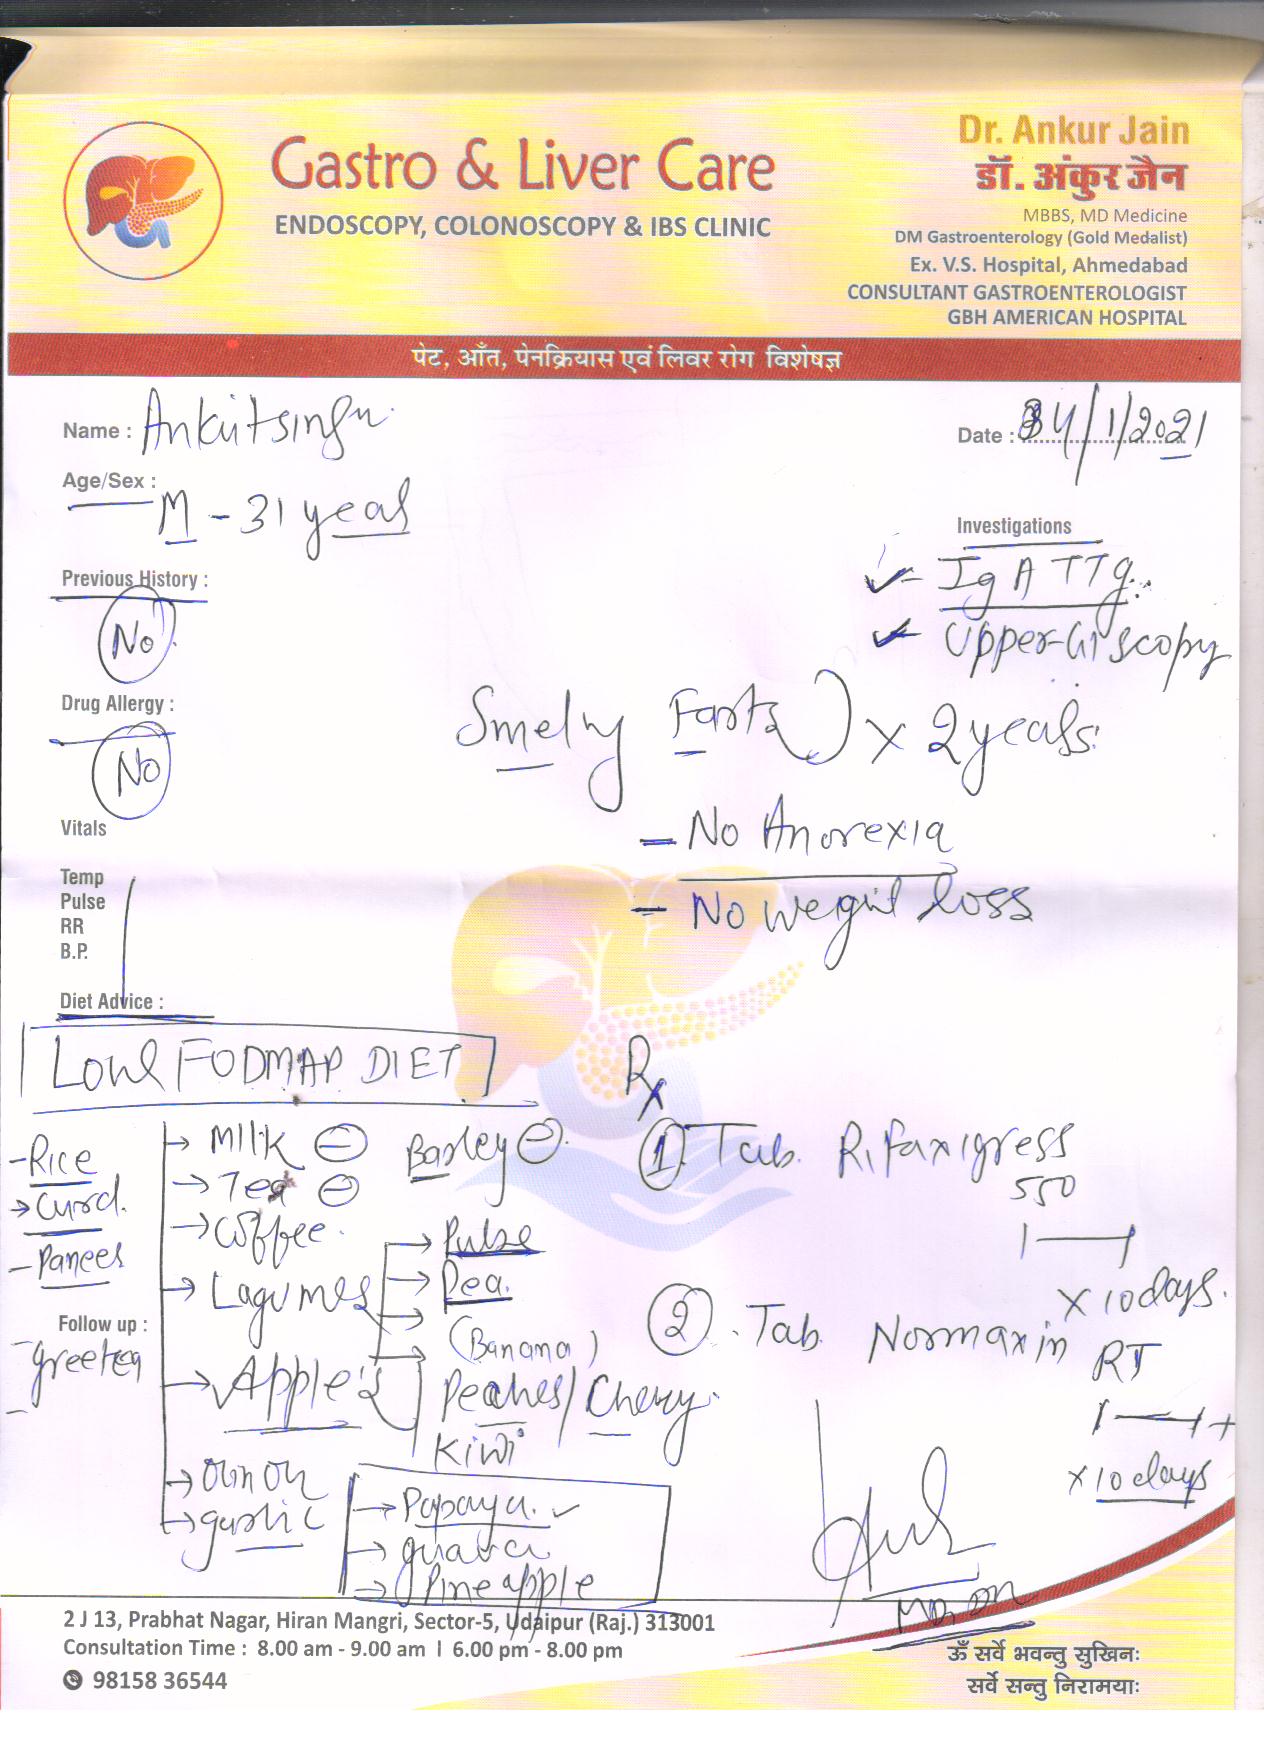 Gastro & Liver Care
ENDOSCOPY, COLONOSCOPY & IBS CLINIC
Dr. Ankur Jain
डॉ. अंकुर जैन
MBBS, MD Medicine
DM Gastroenterology (Gold Medalist)
Ex. V.S. Hospital, Ahmedabad
CONSULTANT GASTROENTEROLOGIST
GBH AMERICAN HOSPITAL
पेट, आँत, पेनक्रियास एवं लिवर रोग विशेषज्ञ
Name : Ankit singh
Date : 4/1/2021
Age/Sex :
M - 31 years
Investigations
Previous History :
- IgA TTg
No
- Upper-GI scopy
Drug Allergy :
Smelly Farts) x 2 years
No
Vitals
- No Anorexia
Temp
Pulse
- No weight loss
RR
B.P.
Diet Advice :
Low FODMAP DIET
Rx
- Rice
→ Curd.
- Paneer
→ Milk ⊖
→ Tea ⊖
→ Coffee
→ Lagumes
→ Apple's
→ Oinon
→ garlic
Barley ⊖
→ Pulse
→ Pea.
→ (Banana)
Peaches/Cherry
Kiwi
→ Papaya. ✓
→ guava
→ Pineapple
① Tab. Rifaxigress
550
1——1
x 10 days.
② Tab. Normaxin
RT
1——1
x 10 days
Follow up :
2 J 13, Prabhat Nagar, Hiran Mangri, Sector-5, Udaipur (Raj.) 313001
Consultation Time : 8.00 am - 9.00 am I 6.00 pm - 8.00 pm
98158 36544
ॐ सर्वे भवन्तु सुखिनः
सर्वे सन्तु निरामयाः